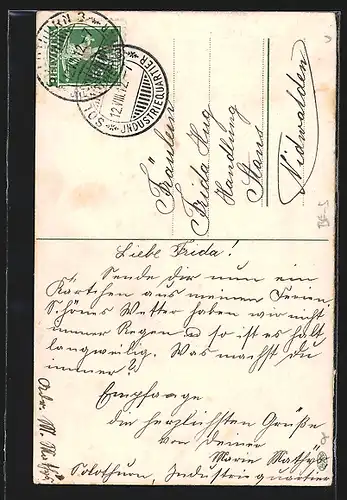 SOLOTHURN 2
HELVETIA
SOLOTHURN
12.VIII.12.-7
INDUSTRIEQUARTIER
Fräulein
Frida Hug
Handlung
Stans
Nidwalden
Liebe Frida!
Sende dir nun ein
Kärtchen aus meinen Ferien.
Schönes Wetter haben wir nicht
immer Regen so ist es halt
langweilig. Was machst du
immer?
Empfange
die herzlichsten Grüße
von deiner
Marie Mathys
Solothurn, Industriequartier
Adr. M. Mathys